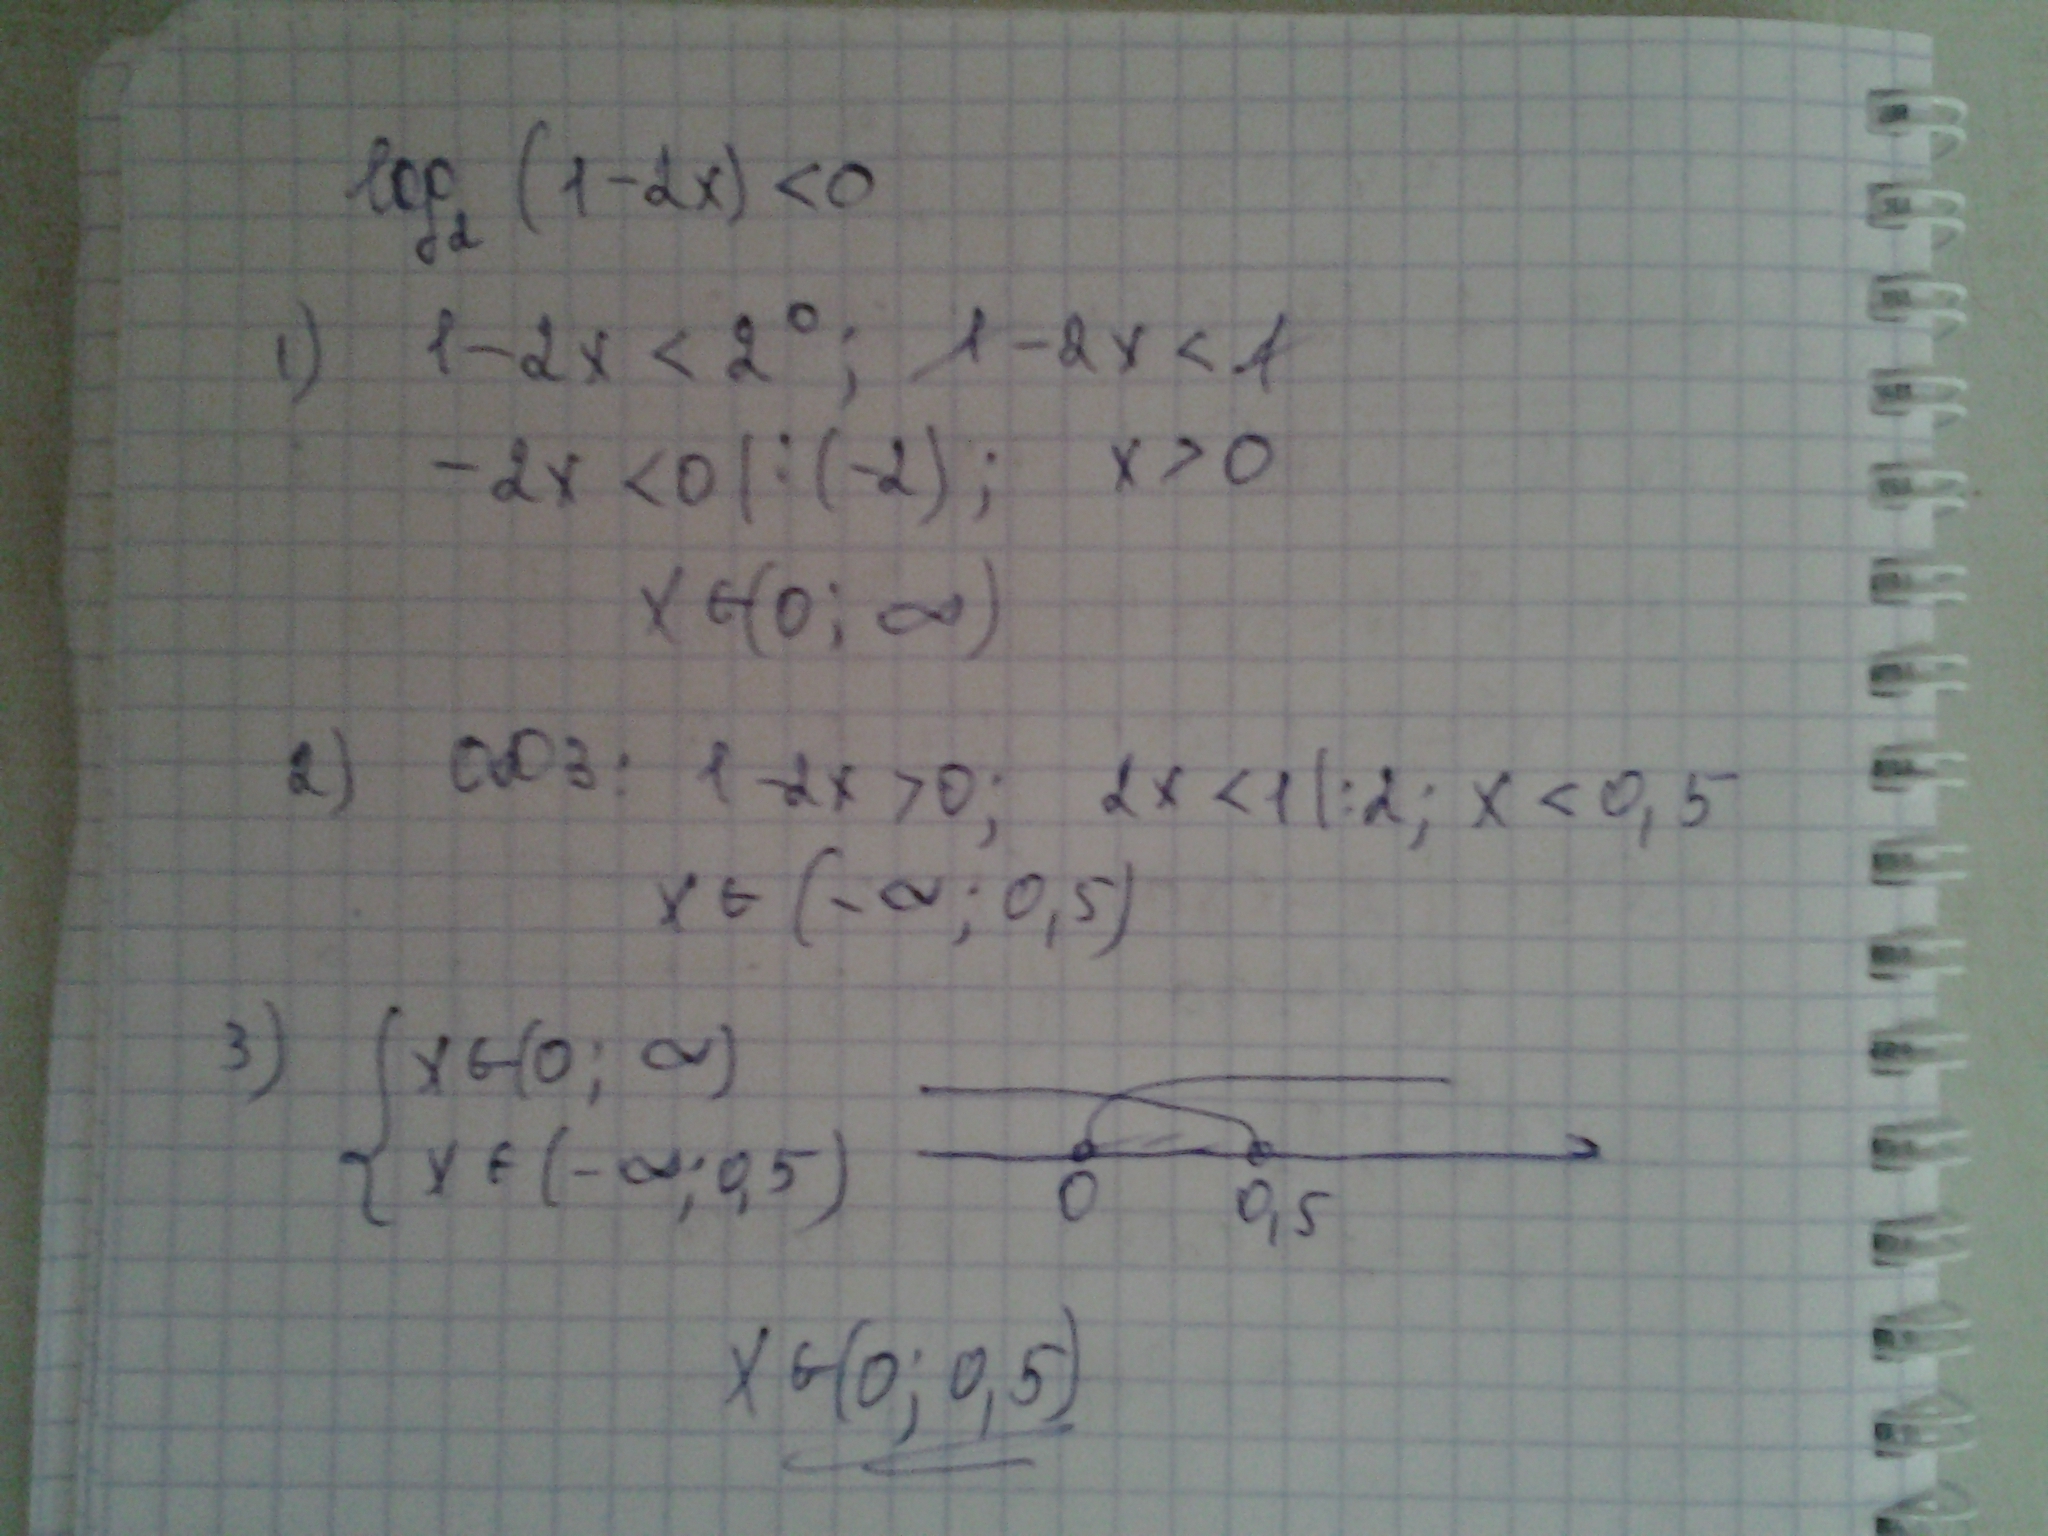 log₂ (1-2x) <0
1) 1-2x < 2⁰; 1-2x < 1
-2x <0 |:(-2); x>0
x∈(0; ∞)
2) ОДЗ: 1-2x >0; 2x <1 |:2; x < 0,5
x∈(-∞; 0,5)
3) { x∈(0; ∞)
x∈(-∞; 0,5)
0 0,5
x∈(0; 0,5)